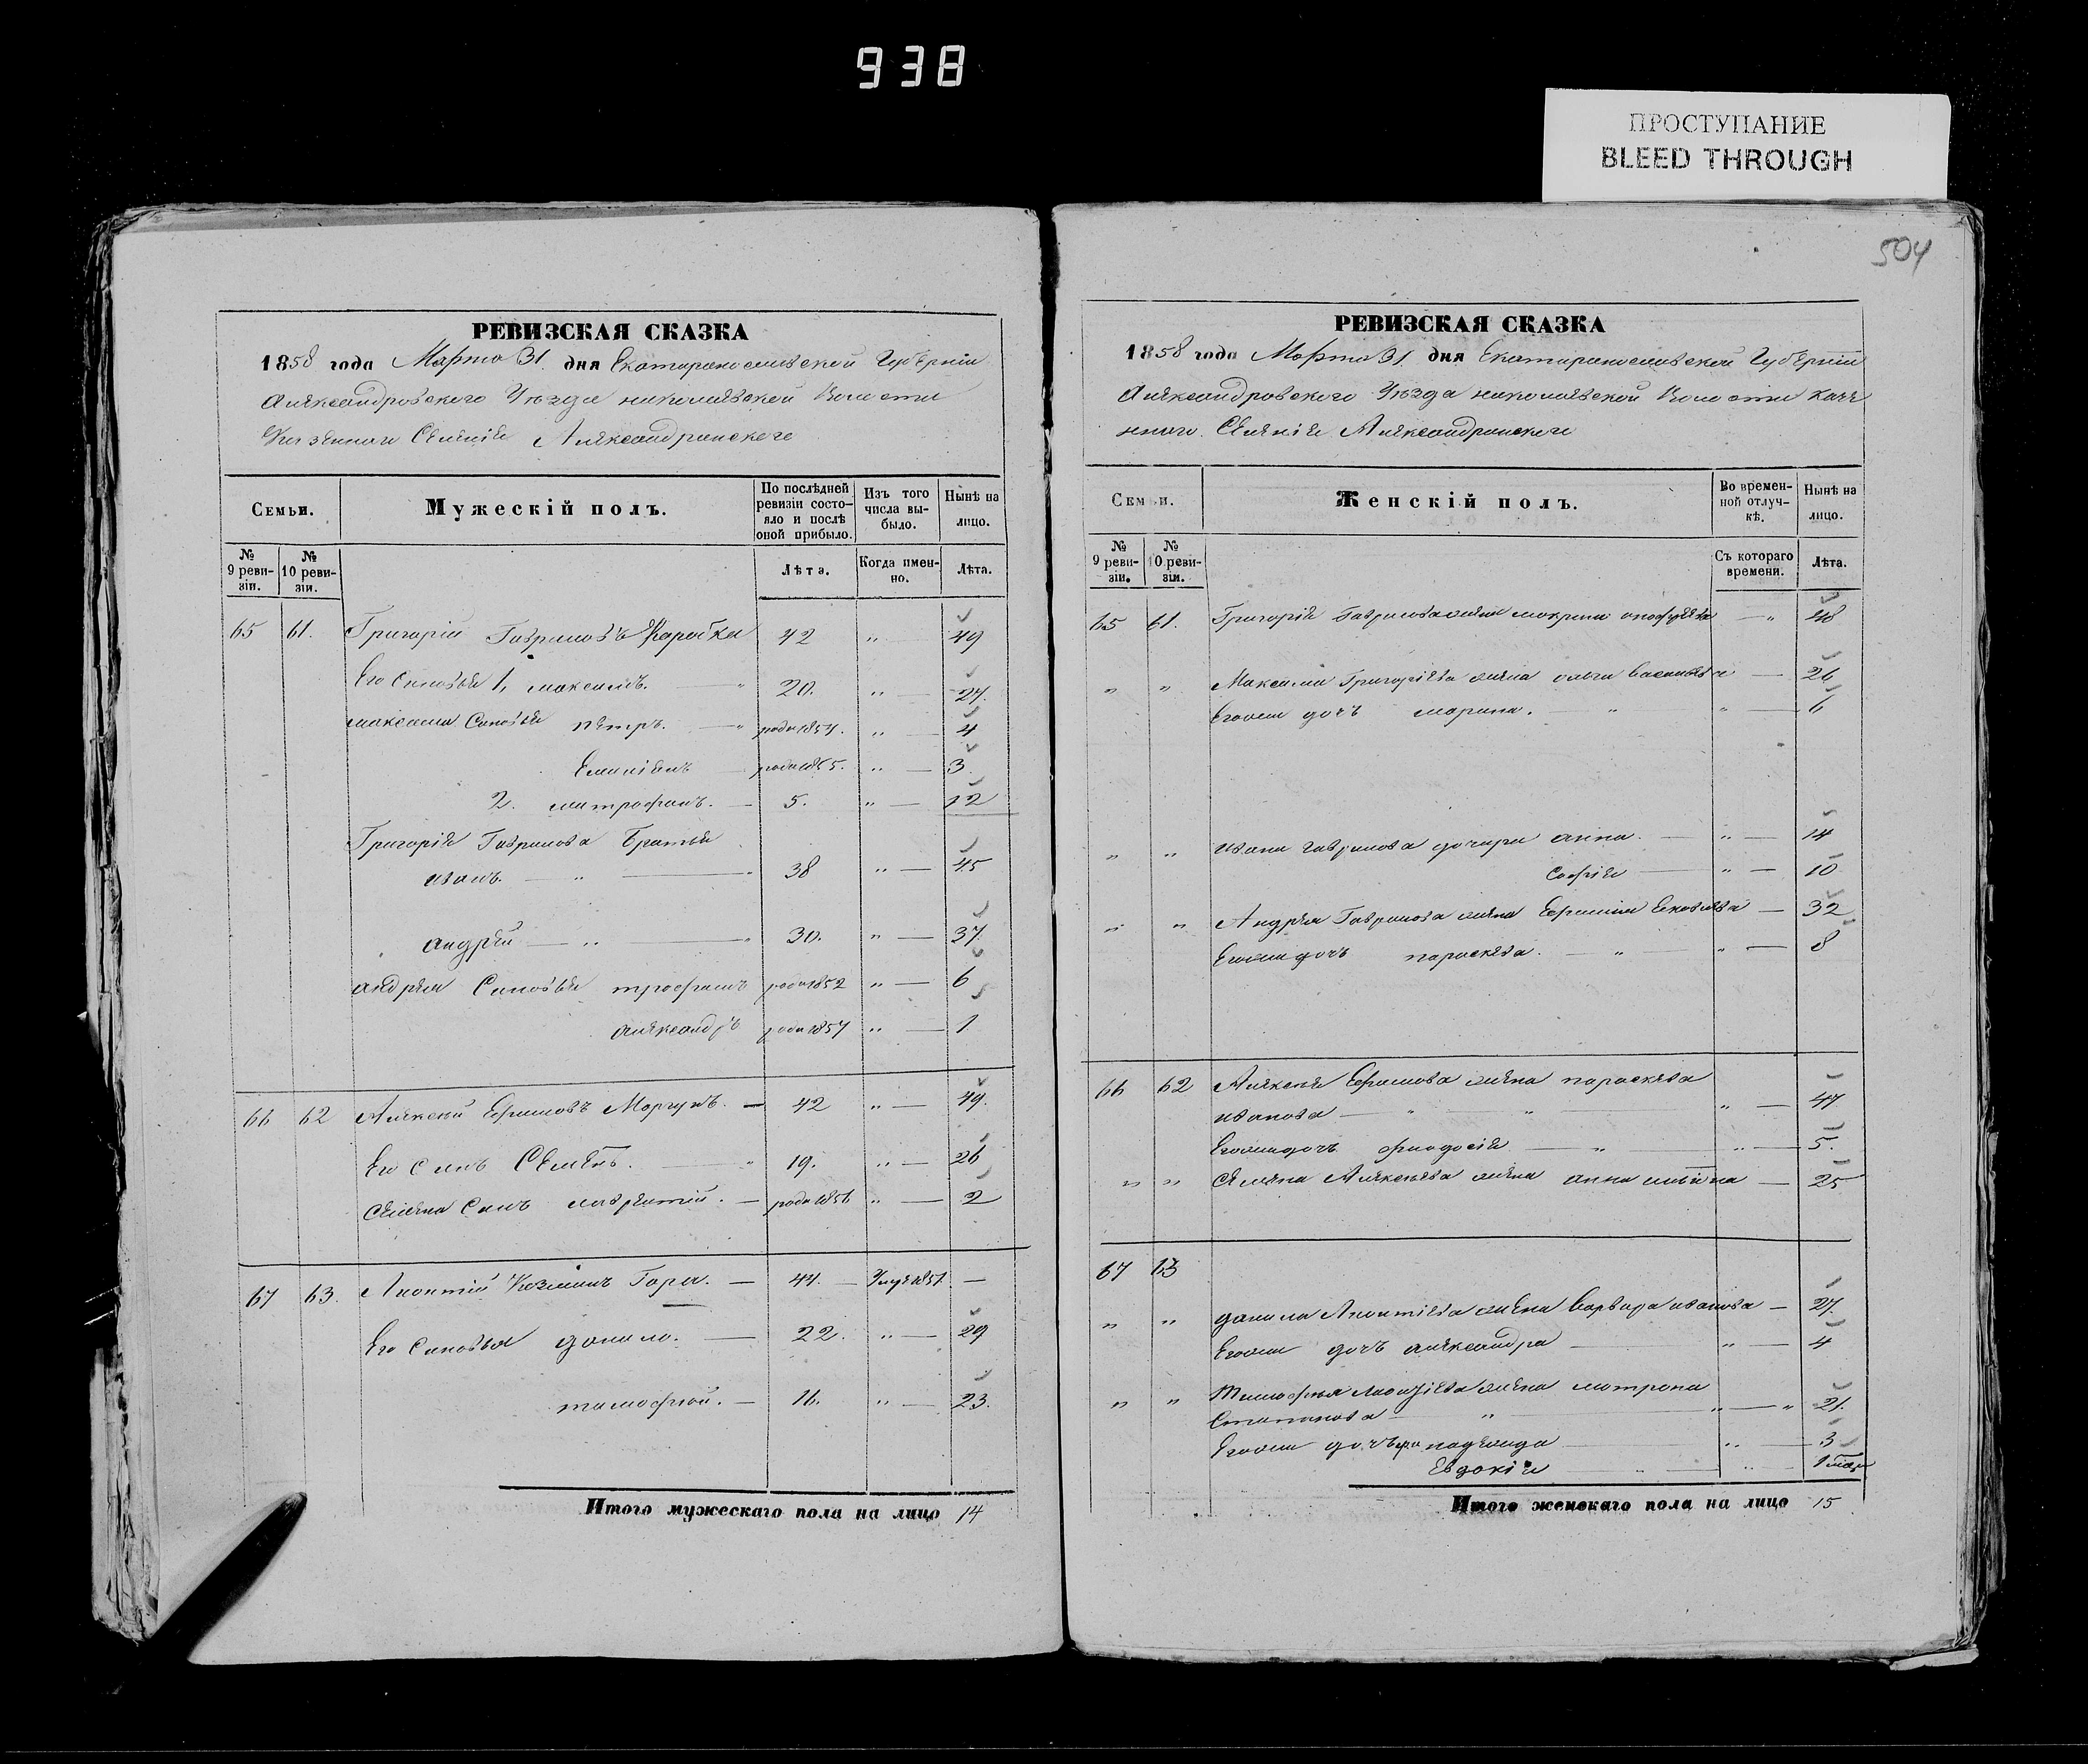 938
ПРОСТУПАНИЕ
BLEED THROUGH
504
РЕВИЗСКАЯ СКАЗКА
1858 года Марта 31. дня Екатеринославской Губерніи
Александровского Уѣзда николаевской Волости
Казенного Селенія Александровского
Семьи.
Мужескій полъ.
По послѣдней ревизіи состояло и послѣ оной прибыло.
Изъ того числа выбыло.
Нынѣ на лицо.
№ 9 ревизіи.
№ 10 ревизіи.
Лѣта.
Когда именно.
Лѣта.
65 61. Григорій Гавриловъ Коробка 42 „ — 49
Его Сыновья 1, максимъ. — „ 20. „ — 27.
максима Сыновья петръ. — „ рода 1854. „ — 4
Емиліянъ — рода 1855. „ — 3.
2. митрофанъ. — 5. „ — 12
Григорія Гаврилова Братья
иванъ. — „ — „ 38 „ — 45
андрей — „ — „ 30. „ — 37.
андрея Сыновья трофимъ рода 1852 „ — 6
александръ рода 1857 „ — 1
66 62 Алексей Ефимовъ Моргунъ. — 42 „ — 49.
Его Сынъ Семенъ. — „ 19. „ — 26
Семена Сынъ лаврентій. — рода 1856 „ — 2
67 63. Леонтій Козминъ Гора. — 44. — Умре 1851 —
Его Сыновья данило. — 22. „ — 29
тимофей. — 16. „ — 23.
Итого мужескаго пола на лицо 14
РЕВИЗСКАЯ СКАЗКА
1858 года Марта 31. дня Екатеринославской Губерніи
Александровского Уѣзда николаевской Волости казе
нного Селенія Александровского
Семьи.
Женскій полъ.
Во временной отлучкѣ.
Нынѣ на лицо.
№ 9 ревизіи.
№ 10 ревизіи.
Съ котораго времени.
Лѣта.
65 61. Григорія Гаврилова жена мокрина — „ 48
„ „ Максима Григорьева жена ольга васильева — 26
Егоже дочь марина. — „ „ — 6
„ „ ивана гаврилова дочери анна. — „ — 14
Софія — „ — 10
„ „ Андрея Гаврилова жена — 32
Егоже дочь параскева. — „ — „ — 8
66 62 Алексея Ефимова жена параскева
иванова — „ — „ „ — 47
Егоже дочь феодосія — „ — „ — 5.
„ „ Семена Алексеева жена анна ильина — 25
67 63
„ „ данила Леонтіева жена Варвара иванова — 27.
Егоже дочь александра — „ — 4
„ „ Тимофея Леонтіева жена матрона
Степанова — „ — „ — „ 21.
Егоже дочъри надежда — „ — 3
Евдокія — „ — „ — 1
Итого женскаго пола на лицо 15